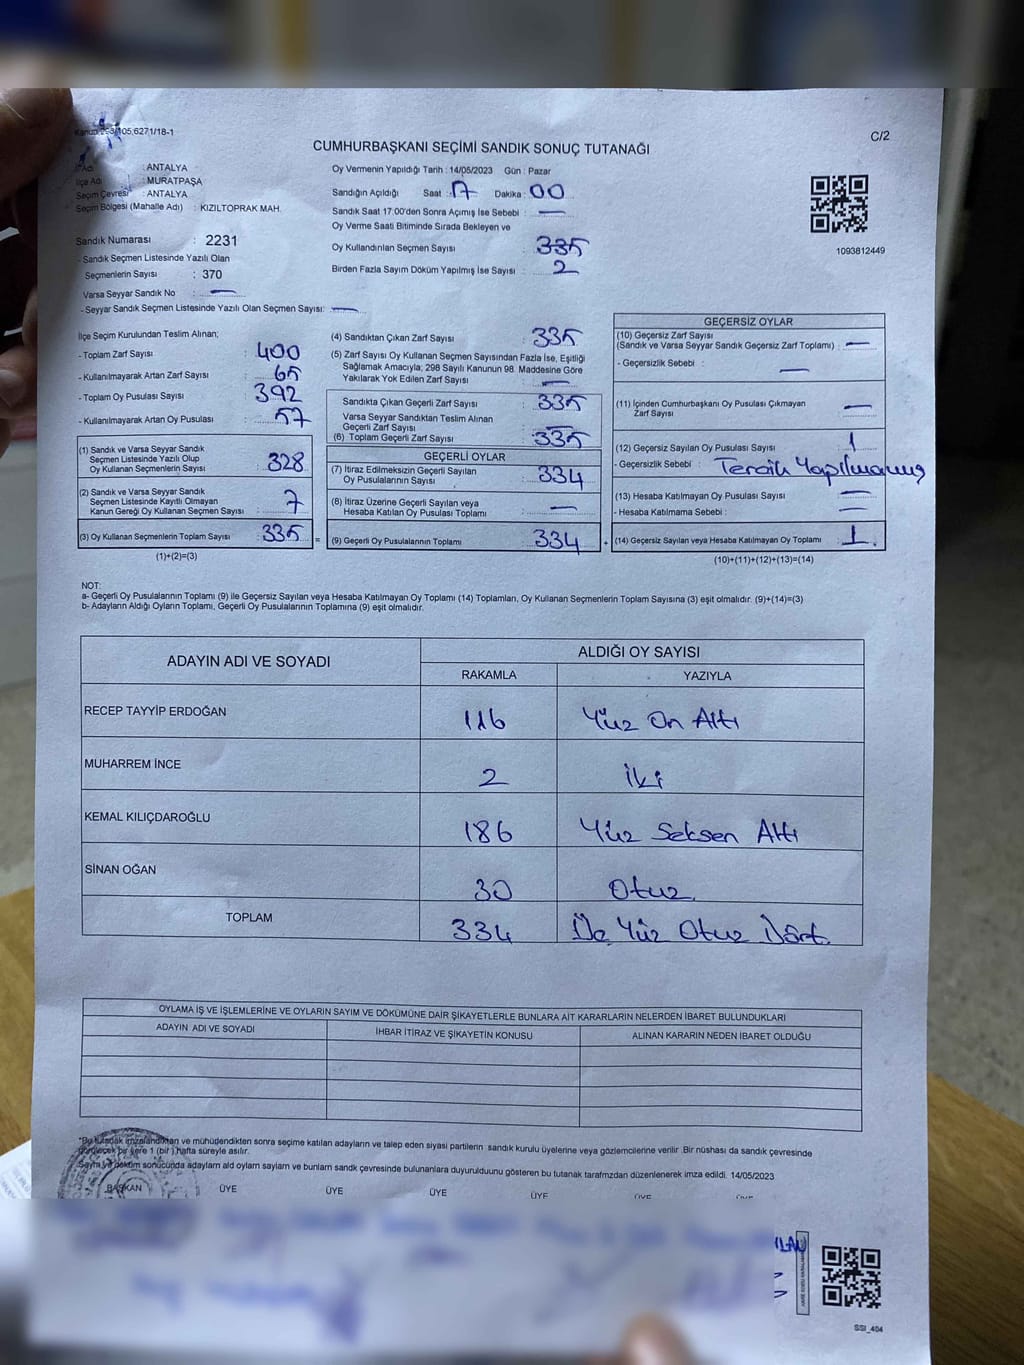 C/2
CUMHURBAŞKANI SEÇİMİ SANDIK SONUÇ TUTANAĞI
: ANTALYA
İlçe Adı : MURATPAŞA
Seçim Çevresi : ANTALYA
Seçim Bölgesi (Mahalle Adı) : KIZILTOPRAK MAH.
Oy Vermenin Yapıldığı Tarih : 14/05/2023 Gün : Pazar
Sandığın Açıldığı Saat : 17 Dakika : 00
Sandık Saat 17:00'den Sonra Açımış İse Sebebi : —
Oy Verme Saati Bitiminde Sırada Bekleyen ve
Oy Kullandırılan Seçmen Sayısı : 335
Birden Fazla Sayım Döküm Yapılmış İse Sayısı : 2
1093812449
Sandık Numarası : 2231
- Sandık Seçmen Listesinde Yazılı Olan
Seçmenlerin Sayısı : 370
Varsa Seyyar Sandık No : —
- Seyyar Sandık Seçmen Listesinde Yazılı Olan Seçmen Sayısı: —
İlçe Seçim Kurulundan Teslim Alınan;
- Toplam Zarf Sayısı : 400
- Kullanılmayarak Artan Zarf Sayısı : 65
- Toplam Oy Pusulası Sayısı : 392
- Kullanılmayarak Artan Oy Pusulası : 57
(1) Sandık ve Varsa Seyyar Sandık
Seçmen Listesinde Yazılı Olup
Oy Kullanan Seçmenlerin Sayısı : 328
(2) Sandık ve Varsa Seyyar Sandık
Seçmen Listesinde Kayıtlı Olmayan
Kanun Gereği Oy Kullanan Seçmen Sayısı : 7
(3) Oy Kullanan Seçmenlerin Toplam Sayısı : 335
(1)+(2)=(3)
(4) Sandıktan Çıkan Zarf Sayısı : 335
(5) Zarf Sayısı Oy Kullanan Seçmen Sayısından Fazla İse, Eşitliği
Sağlamak Amacıyla; 298 Sayılı Kanunun 98. Maddesine Göre
Yakılarak Yok Edilen Zarf Sayısı : —
Sandıkta Çıkan Geçerli Zarf Sayısı : 335
Varsa Seyyar Sandıktan Teslim Alınan
Geçerli Zarf Sayısı : —
(6) Toplam Geçerli Zarf Sayısı : 335
GEÇERLİ OYLAR
(7) İtiraz Edilmeksizin Geçerli Sayılan
Oy Pusulalarının Sayısı : 334
(8) İtiraz Üzerine Geçerli Sayılan veya
Hesaba Katılan Oy Pusulası Toplamı : —
= (9) Geçerli Oy Pusulalarının Toplamı : 334
GEÇERSİZ OYLAR
(10) Geçersiz Zarf Sayısı
(Sandık ve Varsa Seyyar Sandık Geçersiz Zarf Toplamı) : —
- Geçersizlik Sebebi : —
(11) İçinden Cumhurbaşkanı Oy Pusulası Çıkmayan
Zarf Sayısı : —
(12) Geçersiz Sayılan Oy Pusulası Sayısı : 1
- Geçersizlik Sebebi : Tercih Yapılmamış
(13) Hesaba Katılmayan Oy Pusulası Sayısı : —
- Hesaba Katılmama Sebebi : —
+ (14) Geçersiz Sayılan veya Hesaba Katılmayan Oy Toplamı : 1
(10)+(11)+(12)+(13)=(14)
NOT:
a- Geçerli Oy Pusulalarının Toplamı (9) ile Geçersiz Sayılan veya Hesaba Katılmayan Oy Toplamı (14) Toplamları, Oy Kullanan Seçmenlerin Toplam Sayısına (3) eşit olmalıdır. (9)+(14)=(3)
b- Adayların Aldığı Oyların Toplamı, Geçerli Oy Pusulalarının Toplamına (9) eşit olmalıdır.
ADAYIN ADI VE SOYADI ALDIĞI OY SAYISI
RAKAMLA YAZIYLA
RECEP TAYYİP ERDOĞAN 116 Yüz On Altı
MUHARREM İNCE 2 İki
KEMAL KILIÇDAROĞLU 186 Yüz Seksen Altı
SİNAN OĞAN 30 Otuz
TOPLAM 334 Üç Yüz Otuz Dört
OYLAMA İŞ VE İŞLEMLERİNE VE OYLARIN SAYIM VE DÖKÜMÜNE DAİR ŞİKAYETLERLE BUNLARA AİT KARARLARIN NELERDEN İBARET BULUNDUKLARI
ADAYIN ADI VE SOYADI İHBAR İTİRAZ VE ŞİKAYETİN KONUSU ALINAN KARARIN NEDEN İBARET OLDUĞU
*Bu tutanak imzalandıktan ve mühürlendikten sonra seçime katılan adayların ve talep eden siyasi partilerin sandık kurulu üyelerine veya gözlemcilerine verilir. Bir nüshası da sandık çevresinde
görülecek bir yere 1 (bir) hafta süreyle asılır.
Sayım ve döküm sonucunda adayların ald oyların sayısını ve bunların sandk çevresinde bulunanlara duyurulduunu gösteren bu tutanak tarafmzdan düzenlenerek imza edildi. 14/05/2023
BAŞKAN ÜYE ÜYE ÜYE ÜYE ÜYE ÜYE
SSI_404